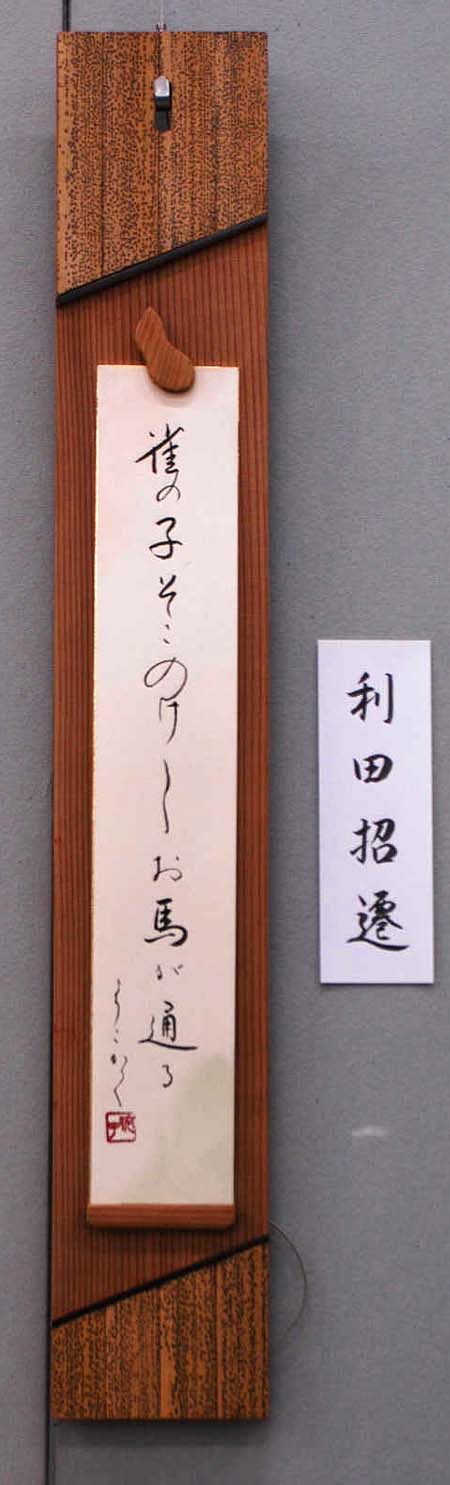 雀の子そこのけ〳〵お馬が通る
ようこかく
利田招遷